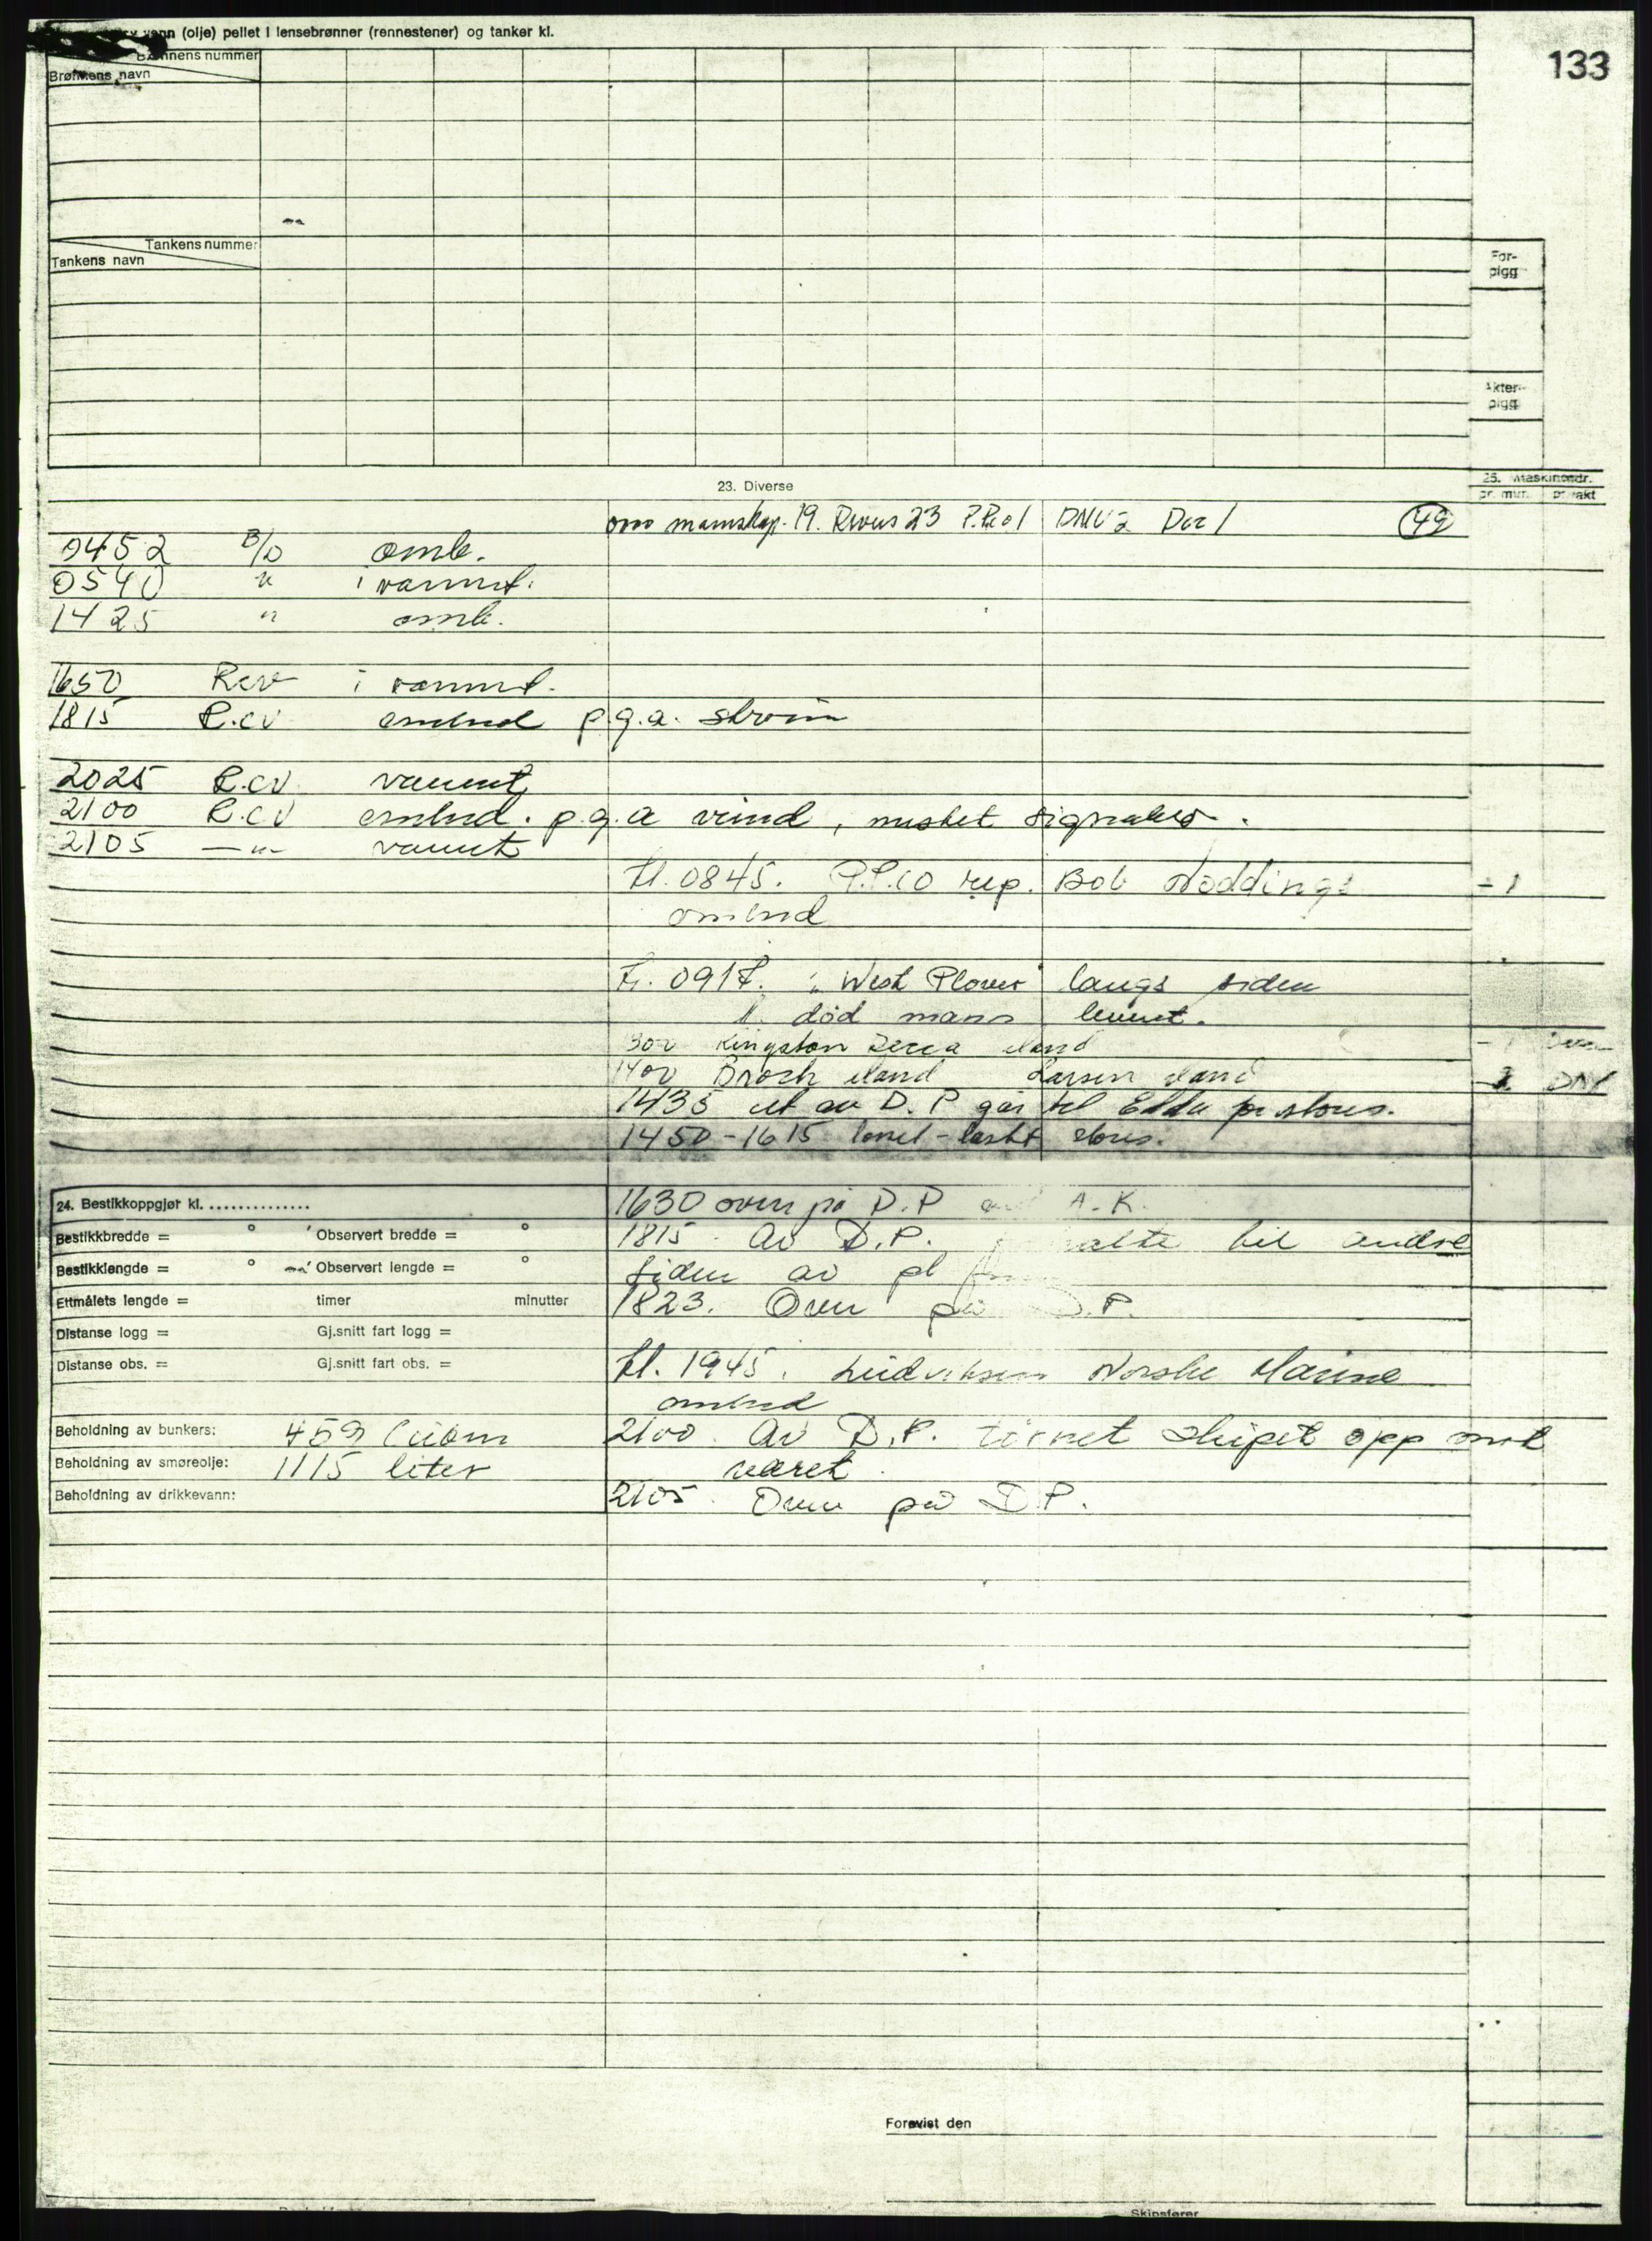 133
vann (olje) peilet i lensebrønner (rennestener) og tanker kl.
Brønnens nummer
Brønnens navn
Tankens nummer
Tankens navn
For-
pigg
Akter-
pigg
23. Diverse
25. Maskinomdr.
pr. min. pr. vakt
mannskap. 19. Rivus 23 P.P.Co 1 DNV 2 Doc 1 49
0452 B/D omb.
0540 " i vannet.
1425 " omb.
1650 Rcv i vannet.
1815 R.cv ombord p.g.a. strøm
2025 R.cv. vannet
2100 R.cv ombord. p.g.a vind, mistet signaler.
2105 — " — vannet
kl. 0845. P.P.co rep. Bob Noddings - 1
ombord
kl. 0917. "West Plover" langs siden
1 død mann levert.
Kingston Decca
1400 Broch iland Larsen iland
1435 ut av D.P går til Edda for stores.
1450 - 1615 stores.
24. Bestikkoppgjør kl. ...............
1630 over på D.P A.K.
Bestikkbredde = ° ' Observert bredde = °
1815. Av D.P. til andre
Bestikklengde = ° ' Observert lengde = °
siden av pl
Ettmålets lengde = timer minutter
1823. Over på D.P.
Distanse logg = Gj.snitt fart logg =
Distanse obs. = Gj.snitt fart obs. =
kl. 1945. Ludvigsen Norske Marine
ombord
Beholdning av bunkers: 459 Cubm
2100. Av D.P. tørnet skipet opp mot
Beholdning av smøreolje: 1115 liter
været.
Beholdning av drikkevann:
2105. Over på D.P.
Forevist den
Skipsfører